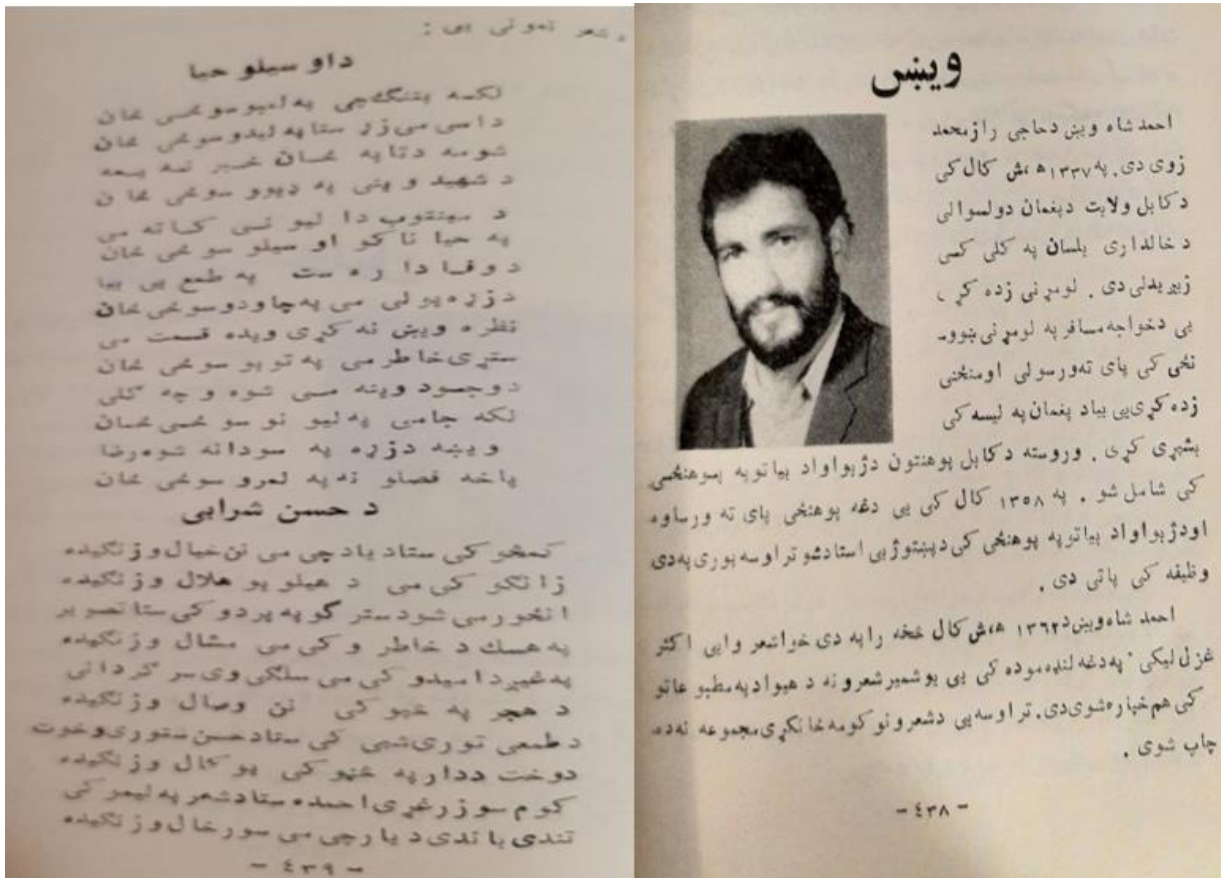 ویښ
احمد شاه ویښ دحاجی رازمحمد
زوی دی. په ۱۳۳۷ ه ، ش کال کی
دکابل ولایت دپغمان دولسوالی
دخالداری بلسان په کلی کسی
زیږیدلی دی . لومړنی زده کړ ،
یی دخواجه مسافر په لومړنی ښوو-
نځی کی پای ته ورسولی اومنځنی
زده کړی یی بیاد پغمان په لیسه کی
بشپړی کړی . وروسته دکابل پوهنتون دژبواواد بیاتوپه پوهنځی
کی شامل شو . په ۱۳۵۸ کال کی یی دغه پوهنځی پای ته ورساوه
اودژبواواد بیاتوپه پوهنځی کی دپښتوژبی استادشو تراوسه پوری په دی
وظیفه کی پاتی دی .
احمد شاه ویښ د ۱۳۶۲ ه ، ش کال څخه راپه دی خواشعر وایی اکثر
غزل لیکی ' په دغه لنډه موده کی یی یوشمیر شعرونه د هیواد په مطبو عاتو
کی هم خپاره شوی دی. تراوسه یی دشعرونو کومه ځانګړی مجموعه نه ده
چاپ شوی .
- ٤٣٨ -
دشعر نمونی یی :
داو سیلو حیا
لکه پتنګ چی په لمبو سوځی ځان
داسی می زړ ستا په لیدو سوځی ځان
شومه دتا په ځان خبر نه یمه
د شهید وینی په ډیوو سوځی ځان
د مینتوب دا لیو نی کاته می
په حیا ناکو او سیلو سوځی ځان
دوفا دا ره ست په طمع یی بیا
دزړه پولی می په چاودو سوځی ځان
نظره ویښ نه کړی ویده قسمت می
ستړی خاطر می په توپو سوځی ځان
دوجود وینه می شوه وچه کلی
لکه جامی په لیو نو سوځی ځان
وینه دزړه په سودا نه شوه رضا
پاخه فصلو ته په لمرو سوځی ځان
د حسن شرابی
کمڅو کی ستاد یاد چی می نن خیال وز نګیده
زانګو کی می د هیلو یو هلال وز نګیده
انځورمی شود سترګو په پردو کی ستا تصویر
په هسک د خاطر و کی می مشال وز نګیده
په غیږ دامیدو کی می سلګی وی سر ګردانی
د هجر په غیو کی نن وصال وز نګیده
د طمعی توری شپی کی ستاد حسن ستوری وخوت
دوخت ددار په څپو کی یو کال وز نګیده
کوم سوز رغړی احمده ستاد شعر په لیمر کی
تندی باندی د یار چی می سورخال وز نګیده
- ٤٣٩ -